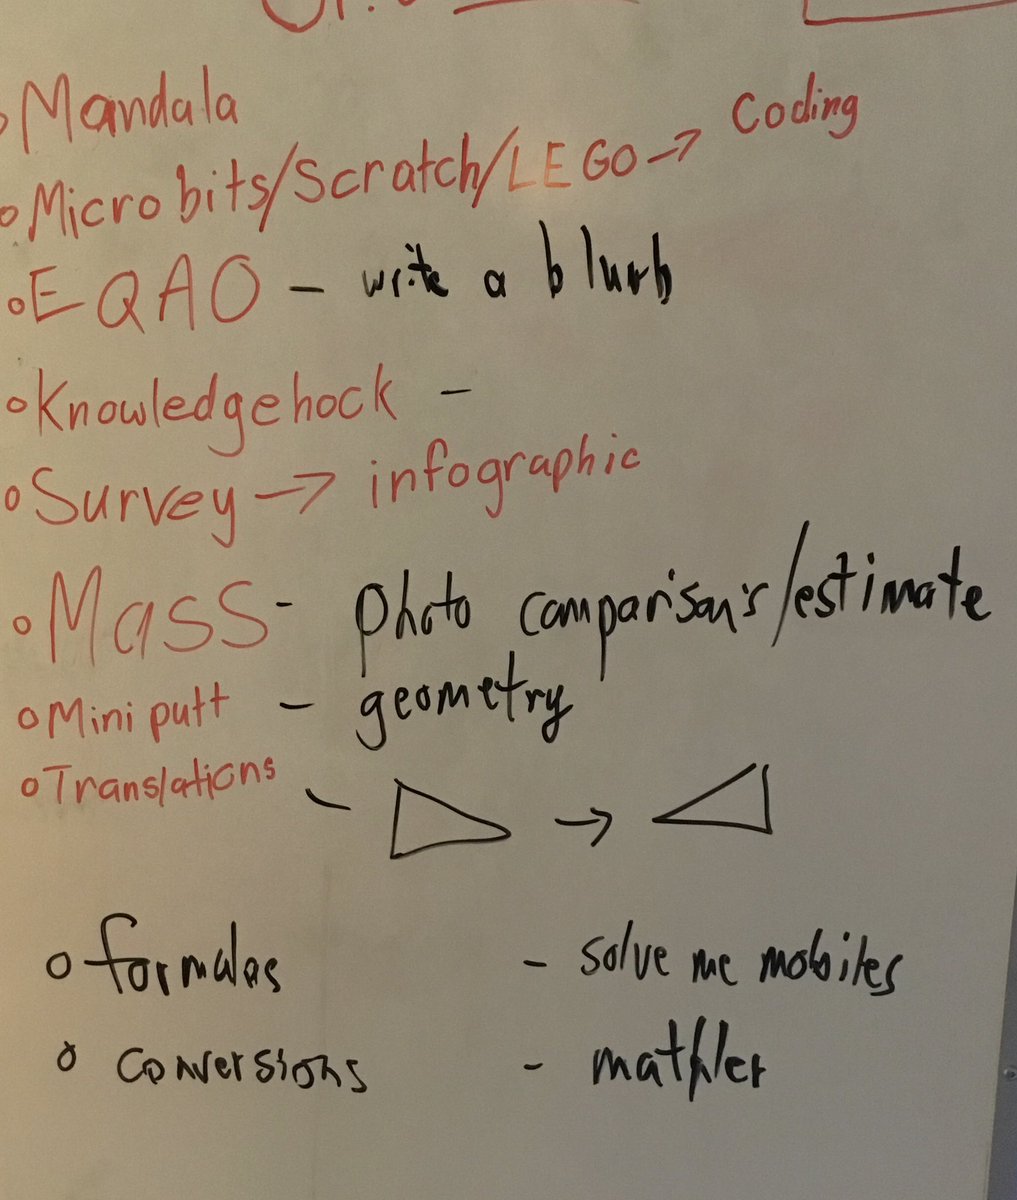 Mandala
Microbits/Scratch/LEGO → Coding
EQAO – write a blurb
Knowledgehock –
Survey → infographic
Mass - photo comparison's/estimate
Mini putt – geometry
Translations – →
formulas - solve me mobiles
conversions - mathler